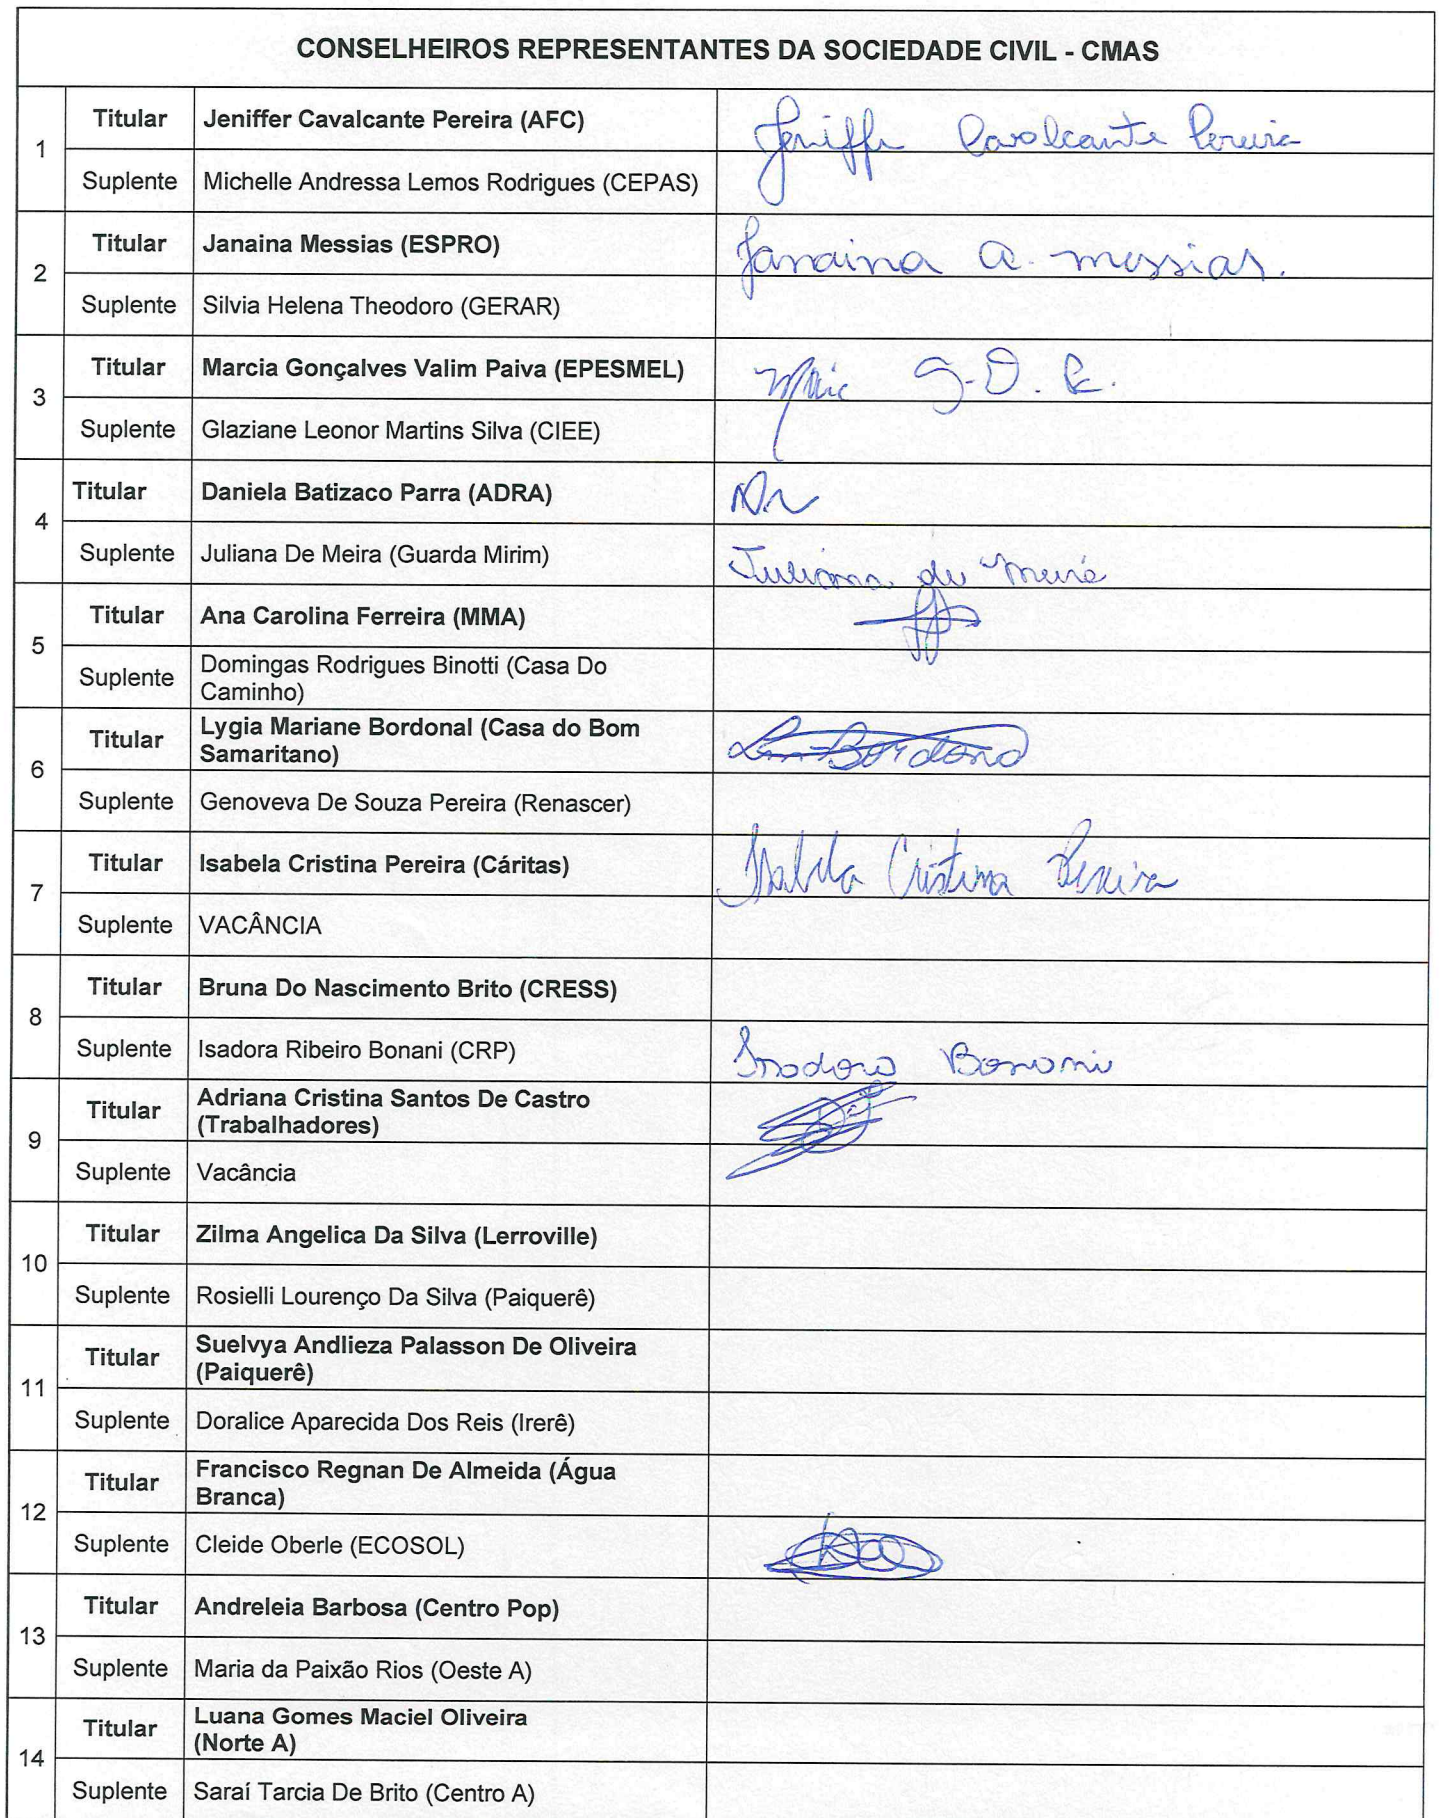 CONSELHEIROS REPRESENTANTES DA SOCIEDADE CIVIL - CMAS
1
Titular Jeniffer Cavalcante Pereira (AFC) Jeniffe Cavalcante Pereira
Suplente Michelle Andressa Lemos Rodrigues (CEPAS)
2
Titular Janaina Messias (ESPRO) Janaina A. Messias.
Suplente Silvia Helena Theodoro (GERAR)
3
Titular Marcia Gonçalves Valim Paiva (EPESMEL)
Suplente Glaziane Leonor Martins Silva (CIEE)
4
Titular Daniela Batizaco Parra (ADRA)
Suplente Juliana De Meira (Guarda Mirim) Juliana de Meira
5
Titular Ana Carolina Ferreira (MMA)
Suplente Domingas Rodrigues Binotti (Casa Do
Caminho)
6
Titular Lygia Mariane Bordonal (Casa do Bom
Samaritano)
Suplente Genoveva De Souza Pereira (Renascer)
7
Titular Isabela Cristina Pereira (Cáritas) Isabela Cristina Pereira
Suplente VACÂNCIA
8
Titular Bruna Do Nascimento Brito (CRESS)
Suplente Isadora Ribeiro Bonani (CRP) Isadora Bonani
9
Titular Adriana Cristina Santos De Castro
(Trabalhadores)
Suplente Vacância
10
Titular Zilma Angelica Da Silva (Lerroville)
Suplente Rosielli Lourenço Da Silva (Paiquerê)
11
Titular Suelvya Andlieza Palasson De Oliveira
(Paiquerê)
Suplente Doralice Aparecida Dos Reis (Irerê)
12
Titular Francisco Regnan De Almeida (Água
Branca)
Suplente Cleide Oberle (ECOSOL)
13
Titular Andreleia Barbosa (Centro Pop)
Suplente Maria da Paixão Rios (Oeste A)
14
Titular Luana Gomes Maciel Oliveira
(Norte A)
Suplente Saraí Tarcia De Brito (Centro A)